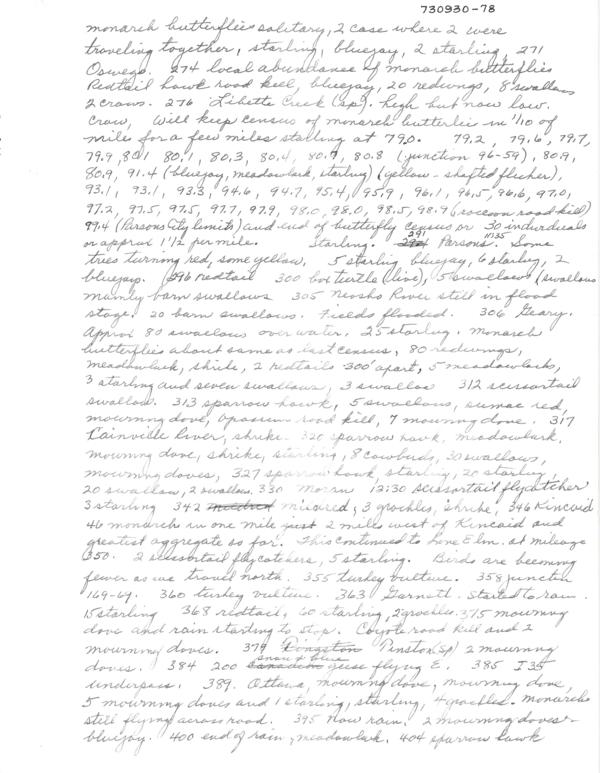 730930-78
monarch butterflies solitary, 2 case where 2 were
traveling together, starling, bluejay, 2 starling, 271
Oswego. 274 local abundance of monarch butterflies
Redtail hawk road kill, bluejay, 20 redwings, 8 swallows
2 crows. 276 Libette Creek (sp). high but now low.
Crow, Will keep census of monarch butterflie in 1/10 of
mile for a few miles starling at 79.0. 79.2, 79.6, 79.7,
79.9, 80.1 80.1, 80.3, 80.4, 80.7, 80.8 (junction 96-59), 80.9,
80.9, 91.4 (bluejay, meadowlark, starling) (yellow-shafted flicker),
93.1, 93.1, 93.3, 94.6, 94.7, 95.4, 95.9, 96.1, 96.5, 96.6, 97.0,
97.2, 97.5, 97.5, 97.7, 97.9, 98.0, 98.0, 98.5, 98.9 (raccoon road kill)
99.4 (Parsons City limits) and end of butterfly census or 30 individuals
or approx 1 1/2 per mile. Starling. 291 Parsons. 1135 Some
trees turning red, some yellow. 5 starling bluejay, 6 starling, 2
bluejay. 296 redtail 300 box turtle (live), 5 swallows (swallows
mainly barn swallows 305 Neosho River still in flood
stage. 20 barn swallows. Fields flooded. 306 Geary.
Approx 80 swallows over water. 25 starling. Monarch
butterflies about same as last census, 80 redwings,
meadowlark, shrike, 2 redtails 300' apart, 5 meadowlarks,
3 starling and seven swallows, 3 swallow 312 scissortail
swallow. 313 sparrow hawk, 5 swallows, sumac red,
mourning dove, opossum road kill, 7 mourning dove. 317
river, shrike. 320 sparrow hawk, meadowlark.
mourning dove, shrike, starling, 8 cowbirds, 30 swallows,
mourning doves, 327 sparrow hawk, starling, 20 starling,
20 swallow, 2 swallows. 330 Moran 12:30 scissortail flycatcher
3 starling 342 mildred, 3 grackles, shrike, 346 Kincaid
46 monarchs in one mile just 2 miles west of Kincaid and
greatest aggregate so far. This continued to Lone Elm. at mileage
350. 2 scissortail flycatchers, 5 starling. Birds are becoming
fewer as we travel north. 355 turkey vulture. 358 junction
169-69. 360 turkey vulture. 363 Garnett. Started to rain.
15 starling 368 redtail, 60 starling, 2 grackles. 375 mourning
dove and rain starting to stop. Coyote road kill and 2
mourning doves. 379 Pinston (sp) 2 mourning
doves. 384 200 snow & blue geese flying E. 385 I35
underpass. 389. Ottawa, mourning dove, mourning dove,
5 mourning doves and 1 starling, starling, 4 grackles. Monarchs
still flying across road. 395 Now rain. 2 mourning doves-
bluejay. 400 end of rain, meadowlark. 404 sparrow hawk